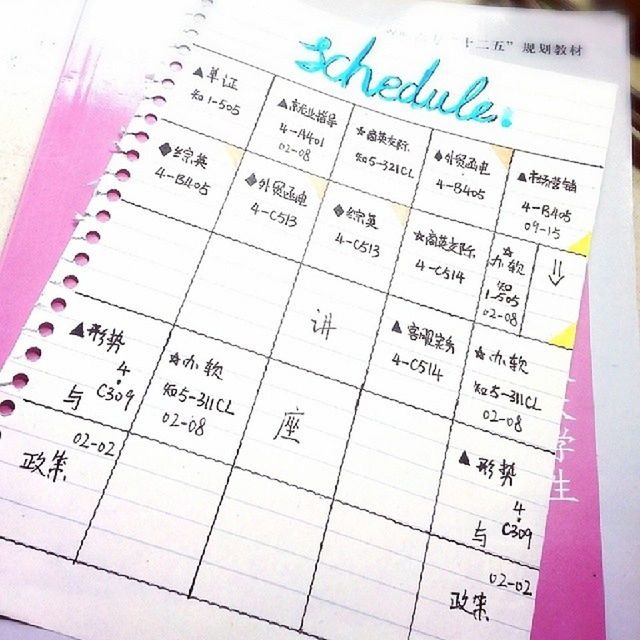 "十二五"规划教材
schedule.
▲单证
知1-505
▲高职业指导
4-A401
02-08
☆商英交际
知5-321CL
◆外贸函电
4-B405
▲市场营销
4-B405
09-15
◆综英
4-B405
◆外贸函电
4-C513
◆综英
4-C513
☆商英交际
4-C514
☆办软
知
1-505
02-08
讲
▲客服实务
4-C514
☆办软
知5-311CL
02-08
▲形势
4
与 C309
☆办软
知5-311CL
02-08
座
▲形势
4
与 C309
02-02
政策
02-02
政策
学生